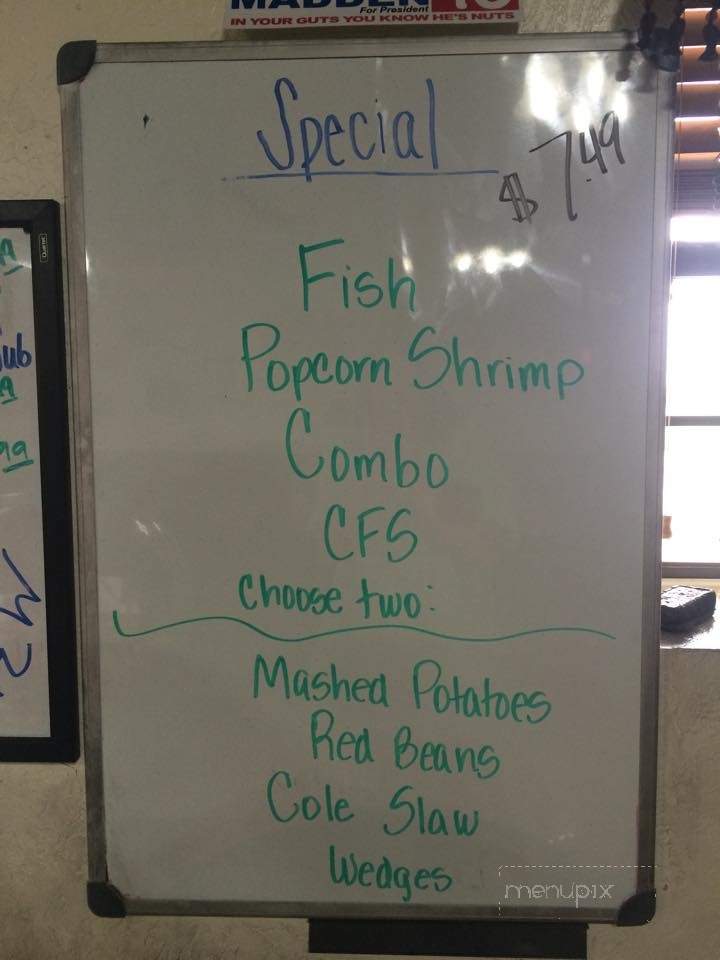 For President
IN YOUR GUTS YOU KNOW HE'S NUTS
Special
$7.49
Fish
Popcorn Shrimp
Combo
CFS
Choose two:
Mashed Potatoes
Red Beans
Cole Slaw
Wedges
menupix